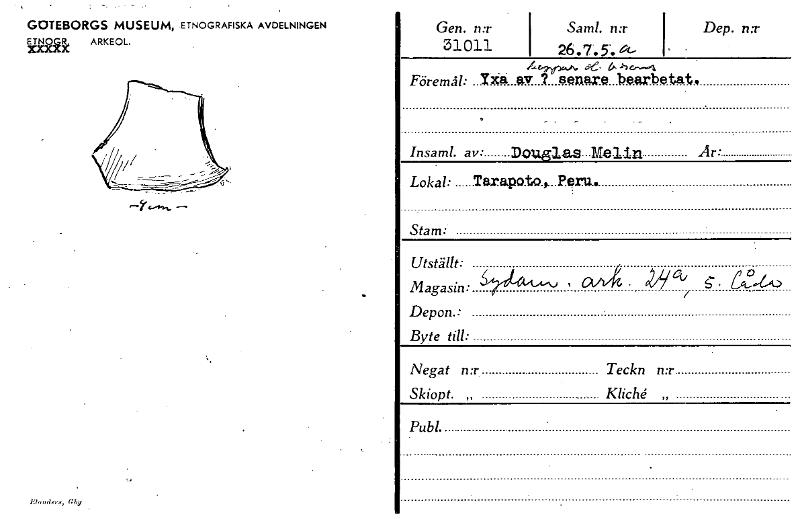 GÖTEBORGS MUSEUM, ETNOGRAFISKA AVDELNINGEN
ETNOGR. ARKEOL.
XXXXX
-4cm-
Elanders, Gbg
Gen. n:r Saml. n:r Dep. n:r
31011 26.7.5.a
koppar el. brons
Föremål: Yxa av ? senare bearbetat.
Insaml. av: Douglas Melin År:
Lokal: Tarapoto, Peru.
Stam:
Utställt:
Magasin: Sydam. ark. 24a, 5. Låda
Depon.:
Byte till:
Negat n:r Teckn n:r
Skiopt. „ Kliché „
Publ.